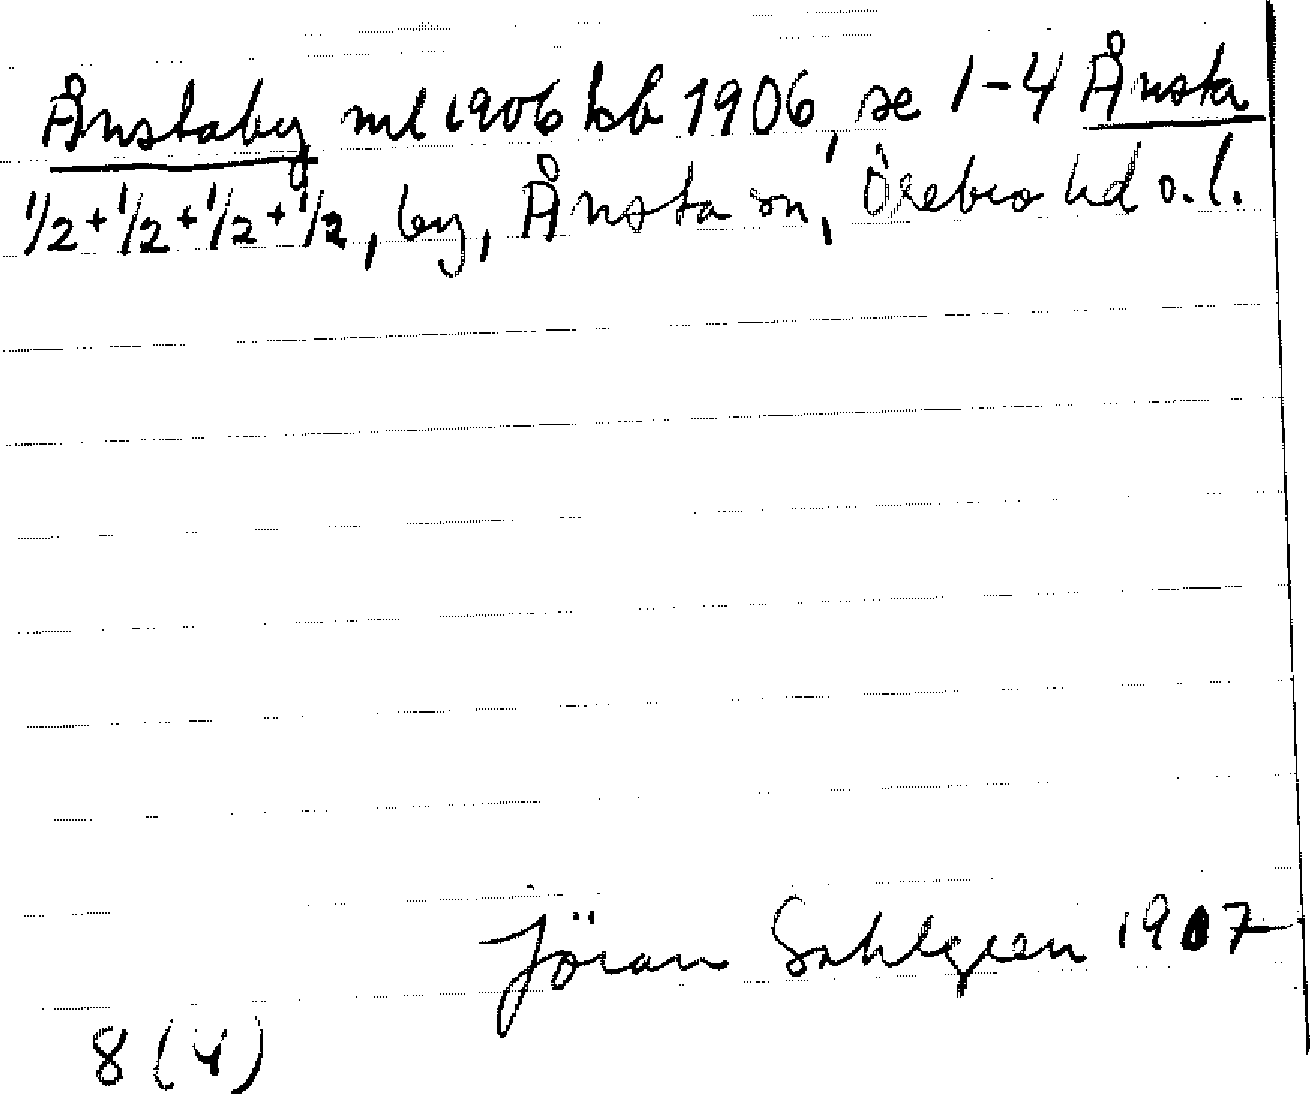 Ånstaby ml 1906 kb 1906, se 1-4 Ånsta
1/2+1/2+1/2+1/2, by, Ånsta sn, Örebro hd o. l.
Jöran Sahlgren 1907
8 (4)